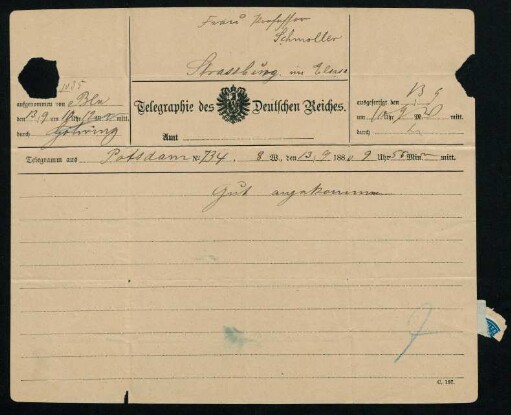 Frau Professor
Schmoller
Strassburg im Elsass
1035
aufgenommen von Bln
den 13/9 um Uhr mitt.
durch Göhring
Telegraphie des Deutschen Reiches.
Amt
ausgefertigt den 13/9
um 10 Uhr 9 M. mitt.
durch
Telegramm aus Potsdam No 734. 8 W., den 13/9 188 9 Uhr 55 Min. mitt.
Gut angekommen
C. 187.